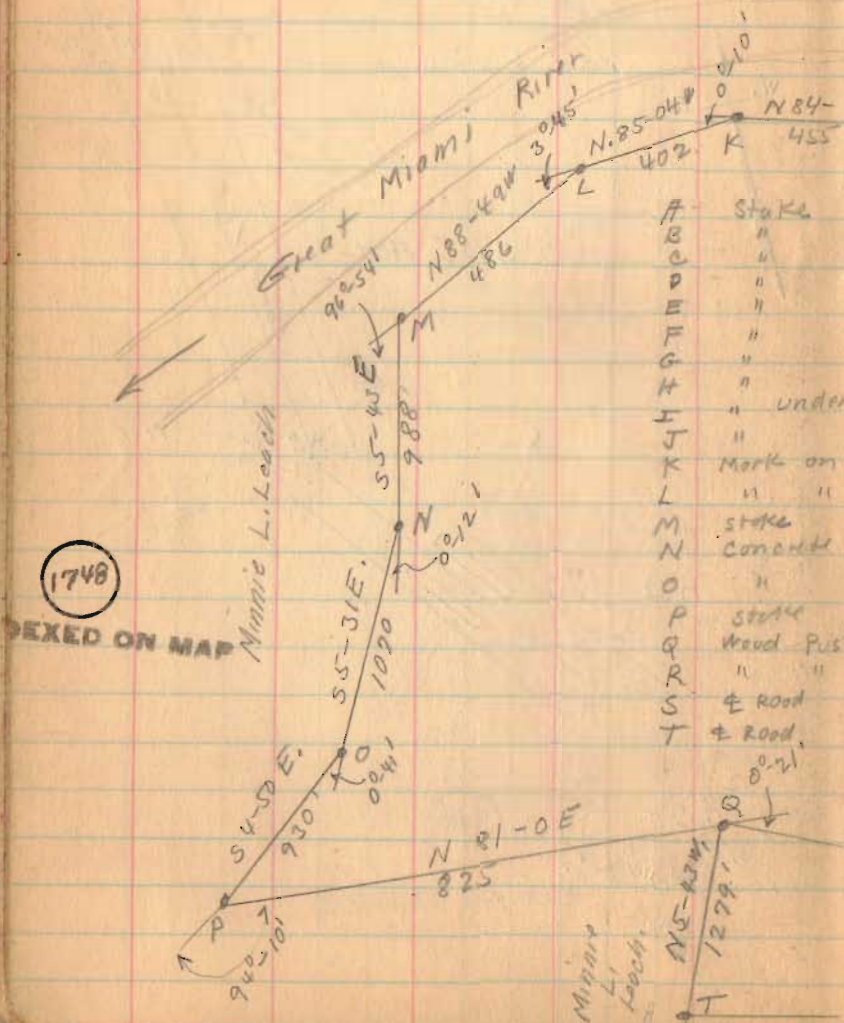 Great Miami River
0°-10'
N 84-
455
K
N. 85-04W
402
3°45'
L
N 88-49W
486
96°-54'
M
S 5-43 E
988'
N
0°-12'
Minnie L. Leach
S 5-31 E.
1020
O
0°-41'
S 4-50 E.
930'
P
94°-10'
N 81-0 E
825
Q
0°-21'
N 5-43 W,
1279.'
T
Minnie
L.
Leach.
1748
DEXED ON MAP
A Stake
B "
C "
D "
E "
F "
G "
H "
I " under
J "
K Mark on
L " "
M stake
N Concrete
O "
P stake
Q Wood Pos
R " "
S ℄ Road
T ℄ Road